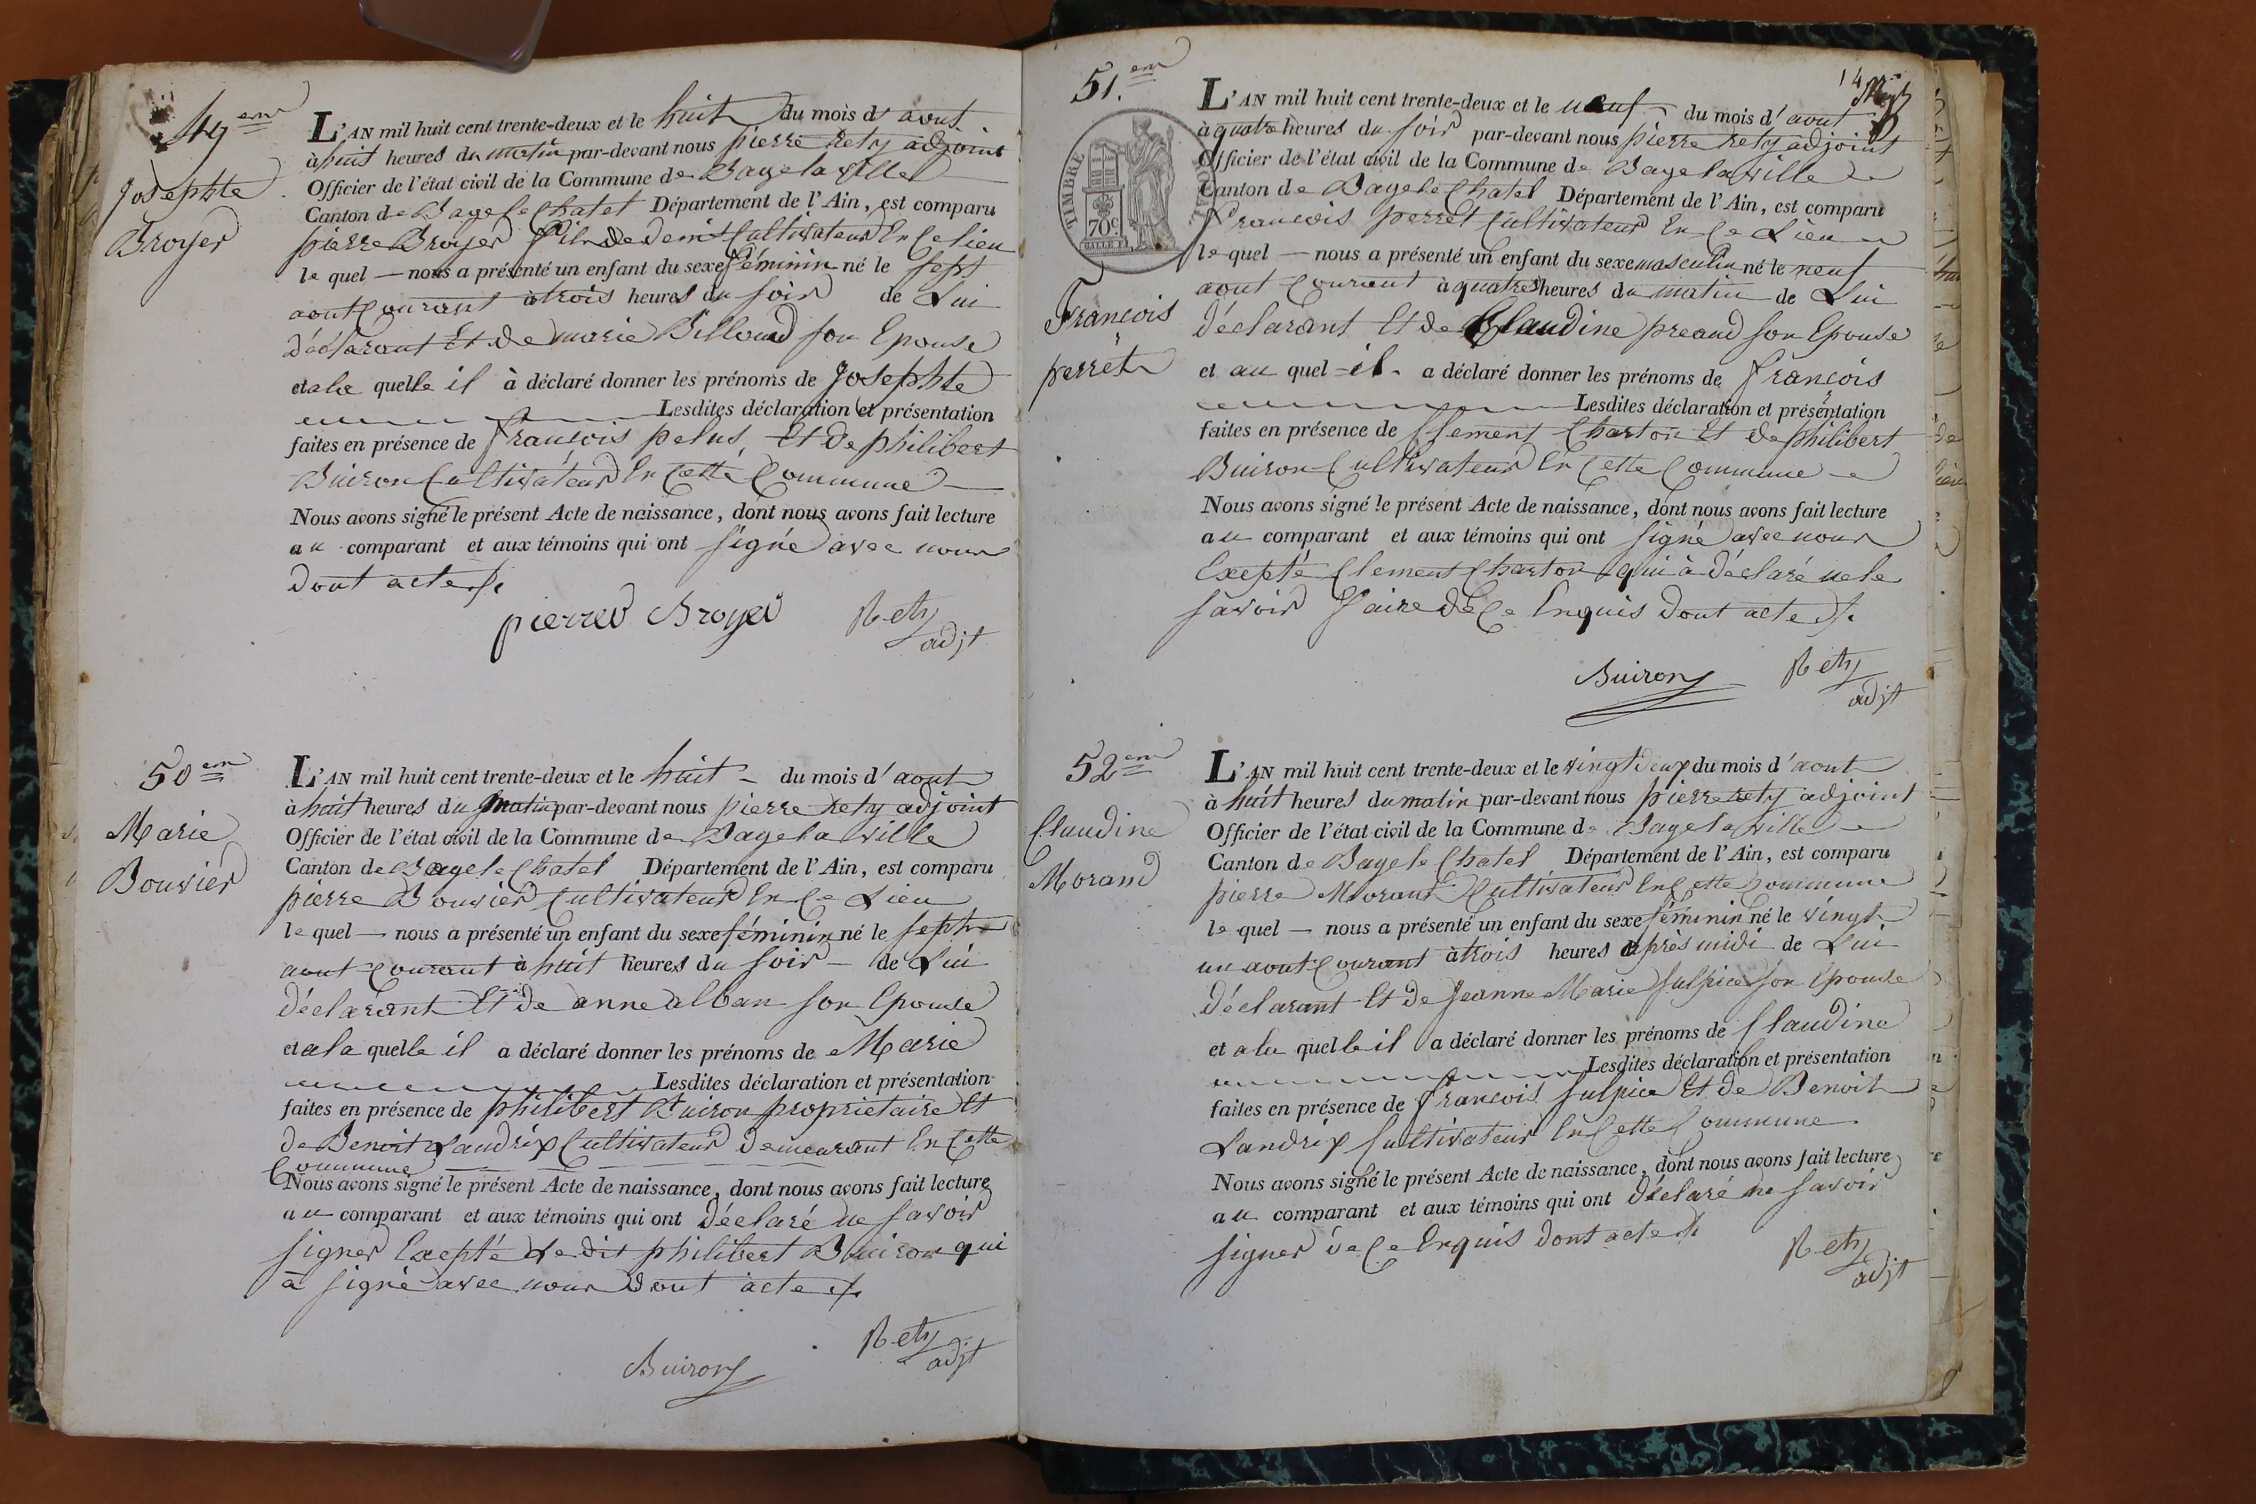 49em
Josephte
Broyer
L'AN mil huit cent trente-deux et le huit du mois d'aout
à huit heures du matin par-devant nous pierre Rety adjoint
Officier de l'état civil de la Commune de Bage la ville
Canton de Bage le Chatel Département de l'Ain, est comparu
pierre Broyer fils de denis Cultivateur En Ce lieu
le quel — nous a présenté un enfant du sexe féminin né le sept
aout Courant à trois heures du soir de Lui
déclarant Et de marie Billoud son Epouse
et a la quelle il à déclaré donner les prénoms de Josephte
Lesdites déclaration et présentation
faites en présence de françois pelus Et de philibert
Buiron Cultivateur En Cette Commune
Nous avons signé le présent Acte de naissance, dont nous avons fait lecture
au comparant et aux témoins qui ont signé avec nous
dont acte
pierre Broyer Rety
adjt
50em
Marie
Bouvier
L'AN mil huit cent trente-deux et le huit du mois d'aout
à huit heures du matin par-devant nous pierre Rety adjoint
Officier de l'état civil de la Commune de Bage la ville
Canton de Bage le Chatel Département de l'Ain, est comparu
pierre Bouvier Cultivateur En Ce Lieu
le quel — nous a présenté un enfant du sexe féminin né le sept
aout Courant à huit heures du soir — de Lui
déclarant Et de anne alban son Epouse
et a la quelle il a déclaré donner les prénoms de Marie
Lesdites déclaration et présentation
faites en présence de philibert Buiron proprietaire Et
de Benoit Landrix Cultivateur demeurant En Cette
Commune
Nous avons signé le présent Acte de naissance, dont nous avons fait lecture
au comparant et aux témoins qui ont déclaré ne savoir
signer Exepté Le dit philibert Buiron qui
à signé avec nous dont acte
Rety
adjt
Buiron
51.em
14
TIMBRE ROYAL
70c
François
perret
L'AN mil huit cent trente-deux et le neuf du mois d'aout
à quatre heures du soir par-devant nous pierre Rety adjoint
Officier de l'état civil de la Commune de Bage la ville
Canton de Bage le Chatel Département de l'Ain, est comparu
François perret Cultivateur En Ce Lieu
le quel — nous a présenté un enfant du sexe masculin né le neuf
aout Courant à quatre heures du matin de Lui
déclarant Et de Claudine preaud son Epouse
et au quel il a déclaré donner les prénoms de françois
Lesdites déclaration et présentation
faites en présence de Clement Charton Et de philibert
Buiron Cultivateur En Cette Commune
Nous avons signé le présent Acte de naissance, dont nous avons fait lecture
au comparant et aux témoins qui ont signé avec nous
Exepté Clement Charton qui à déclaré ne le
savoir faire de Ce Enquis dont acte
Buiron Rety
adjt
52em
Claudine
Morand
L'AN mil huit cent trente-deux et le vingt deux du mois d'aout
à huit heures du matin par-devant nous pierre Rety adjoint
Officier de l'état civil de la Commune de Bage la ville
Canton de Bage le Chatel Département de l'Ain, est comparu
pierre Morand Cultivateur En Cette Commune
le quel — nous a présenté un enfant du sexe féminin né le vingt
un aout Courant à trois heures après midi de Lui
déclarant Et de Jeanne Marie sulpice son Epouse
et a la quelle il a déclaré donner les prénoms de Claudine
Lesdites déclaration et présentation
faites en présence de françois sulpice Et de Benoit
Landrix Cultivateur En Cette Commune
Nous avons signé le présent Acte de naissance, dont nous avons fait lecture
au comparant et aux témoins qui ont déclaré ne savoir
signer de Ce Enquis dont acte
Rety
adjt